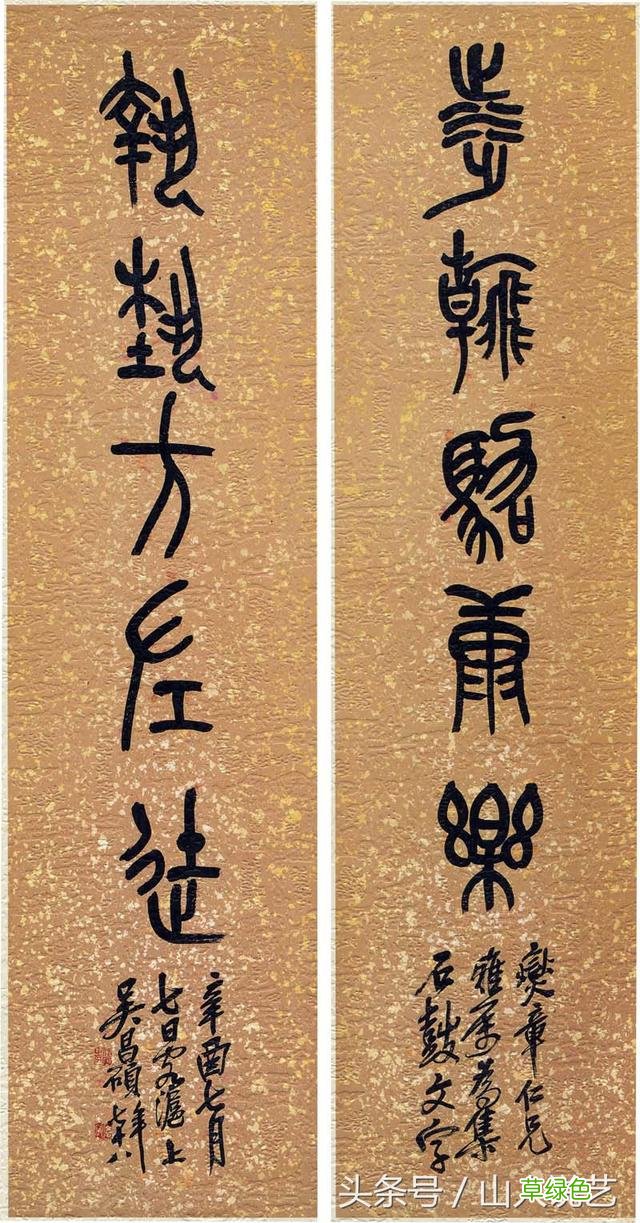 翰康樂
燮章仁兄
雅屬為集
石鼓文字
執埶方左徒
辛酉七月
七日客滬上
吳昌碩年七十八
头条号 / 山人艺
草绿色